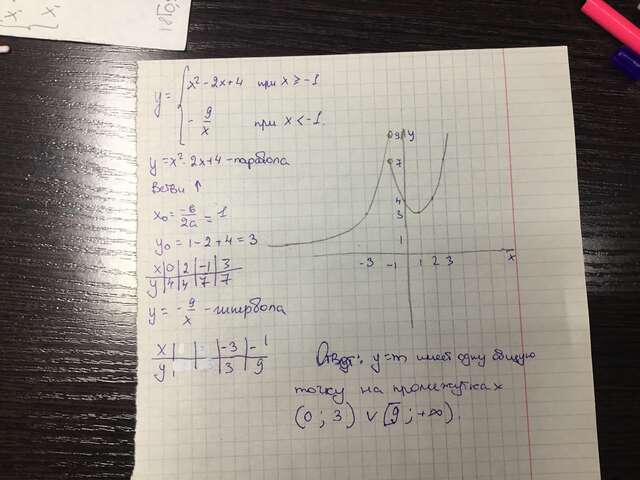 y = { x² - 2x + 4 при x ≥ -1
- 9/x при x < -1.
y = x² - 2x + 4 - парабола
Ветви ↑
x₀ = -b/2a = 1
y₀ = 1 - 2 + 4 = 3
x | 0 | 2 | -1 | 3
y | 4 | 4 | 7 | 7
y = - 9/x - гипербола
x | | | -3 | -1
y | | | 3 | 9
9 y
7
4
3
1
-3 -1 1 2 3 x
Ответ: y=m имеет одну общую
точку на промежутках
(0; 3) ∨ [9; +∞).